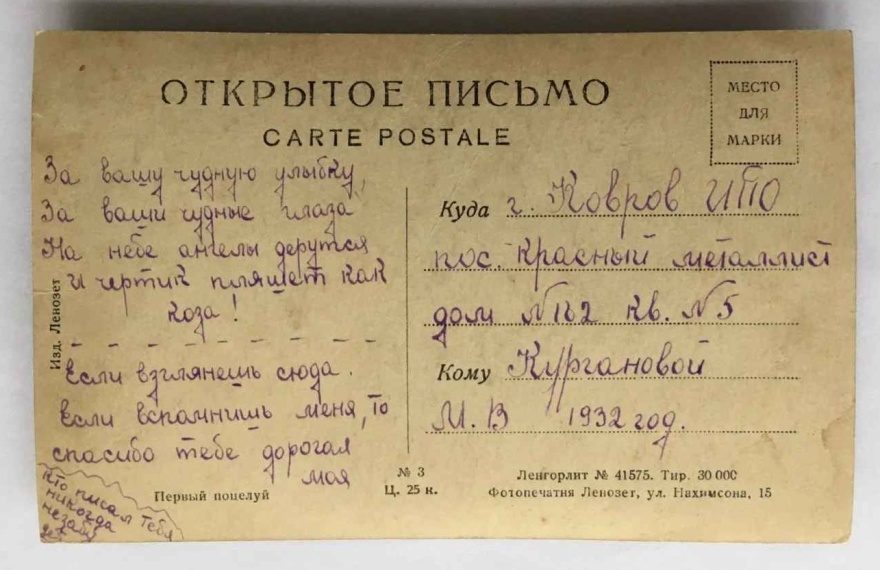 ОТКРЫТОЕ ПИСЬМО
CARTE POSTALE
МЕСТО
ДЛЯ
МАРКИ
За вашу чудную улыбку,
За ваши чудные глаза
На небе ангелы дерутся
И чертик пляшет как
коза!
Если взглянешь сюда.
Если вспомнишь меня, то
спасибо тебе дорогая
моя
кто писал тебя
никогда
незабу
дет
Изд. Ленозет
Первый поцелуй
Куда г. Ковров ИПО
пос. Красный металлист
дом № 2 кв. № 5
Кому Кургановой
М. В 1932 год.
№ 3
Ц. 25 к.
Ленгорлит № 41575. Тир. 30 000
Фотопечатня Ленозет, ул. Нахимсона, 15